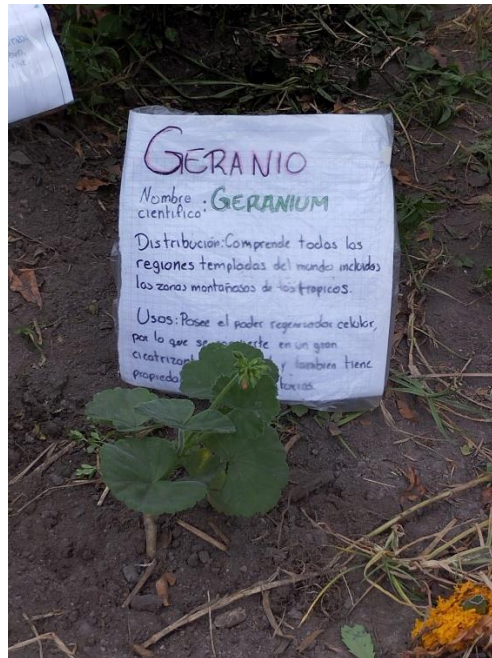 GERANIO
Nombre
científico: GERANIUM
Distribución: Comprende todas las
regiones templadas del mundo incluidos
las zonas montañosas de los tropicos.
Usos: Posee el poder regenerador celular,
por lo que se convierte en un gran
cicatrizante y tambien tiene